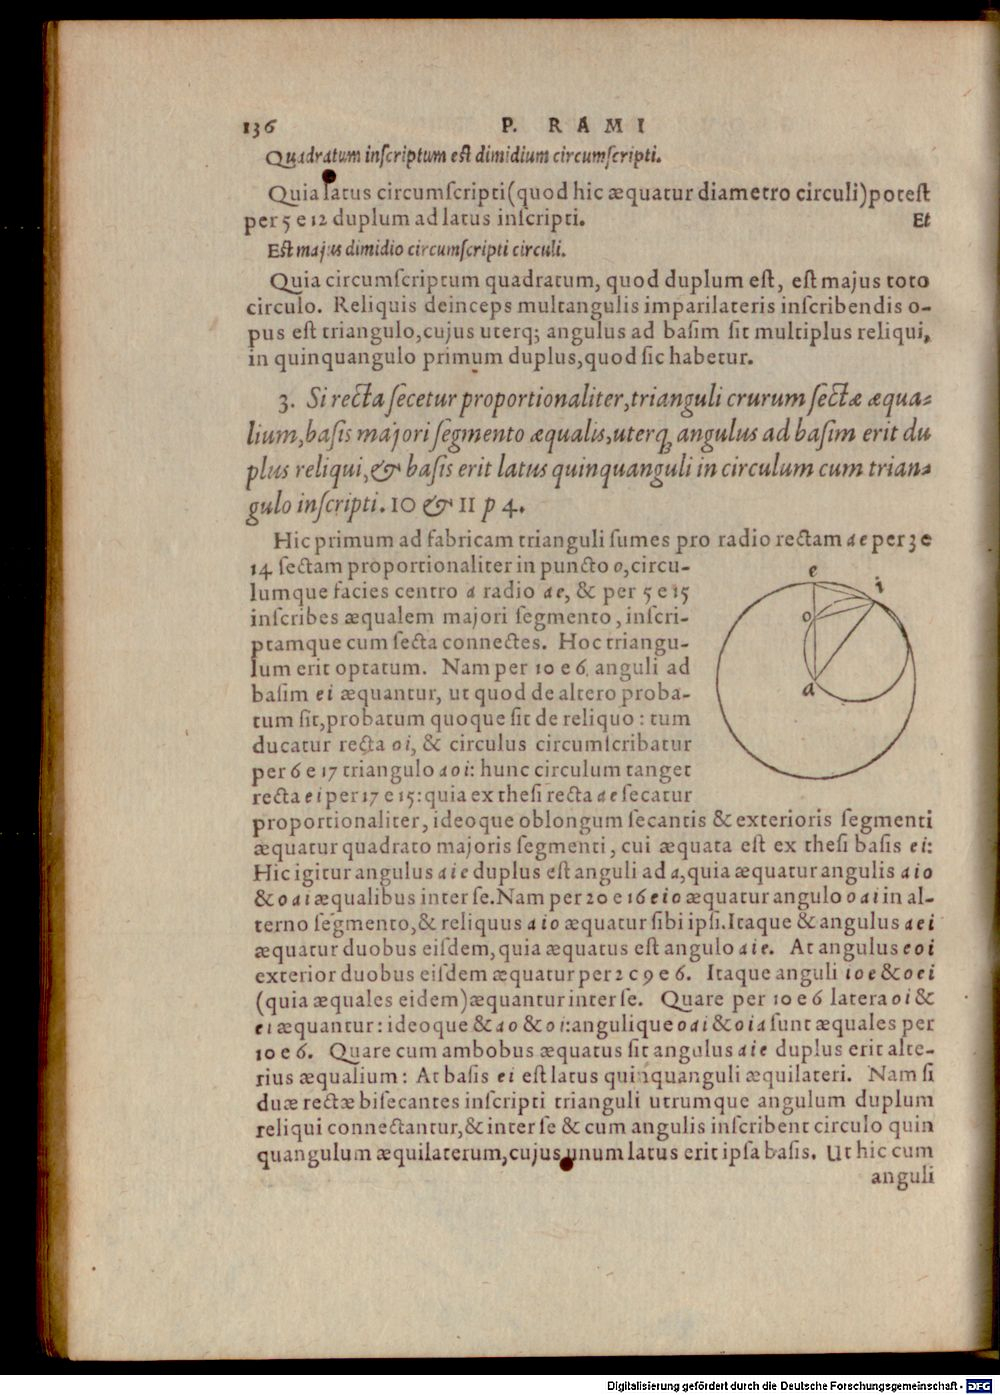 136 P. RAMI
Quadratum inſcriptum eſt dimidium circumſcripti.
Quia latus circumſcripti (quod hic æquatur diametro circuli) poteſt
per 5 e 12 duplum ad latus inſcripti. Et
Eſt majus dimidio circumſcripti circuli.
Quia circumſcriptum quadratum, quod duplum eſt, eſt majus toto
circulo. Reliquis deinceps multangulis imparilateris inſcribendis o-
pus eſt triangulo, cujus uterq; angulus ad baſim ſit multiplus reliqui,
in quinquangulo primum duplus, quod ſic habetur.
3. Si recta ſecetur proportionaliter, trianguli crurum ſectæ æqua-
lium, baſis majori ſegmento æqualis, uterq angulus ad baſim erit du
plus reliqui, & baſis erit latus quinquanguli in circulum cum trian-
gulo inſcripti. 10 & 11 p 4.
Hic primum ad fabricam trianguli ſumes pro radio rectam ae per 3 e
14 ſectam proportionaliter in puncto o, circu-
lumque facies centro a radio ae, & per 5 e 15
inſcribes æqualem majori ſegmento, inſcri-
ptamque cum ſecta connectes. Hoc triangu-
lum erit optatum. Nam per 10 e 6 anguli ad
baſim ei æquantur, ut quod de altero proba-
tum ſit, probatum quoque ſit de reliquo: tum
ducatur recta oi, & circulus circumſcribatur
per 6 e 17 triangulo aoi: hunc circulum tanget
recta ei per 17 e 15: quia ex theſi recta ae ſecatur
e
i
o
a
proportionaliter, ideoque oblongum ſecantis & exterioris ſegmenti
æquatur quadrato majoris ſegmenti, cui æquata eſt ex theſi baſis ei:
Hic igitur angulus aie duplus eſt anguli ad a, quia æquatur angulis aio
& oai æqualibus inter ſe. Nam per 20 e 16 eio æquatur angulo oai in al-
terno ſegmento, & reliquus aio æquatur ſibi ipſi. Itaque & angulus aei
æquatur duobus eiſdem, quia æquatus eſt angulo aie. At angulus eoi
exterior duobus eiſdem æquatur per 2 c 9 e 6. Itaque anguli ioe & oei
(quia æquales eidem) æquantur inter ſe. Quare per 10 e 6 latera oi &
ei æquantur: ideoque & ao & oi: angulique oai & oia ſunt æquales per
10 e 6. Quare cum ambobus æquatus ſit angulus aie duplus erit alte-
rius æqualium: At baſis ei eſt latus quinquanguli æquilateri. Nam ſi
duæ rectæ biſecantes inſcripti trianguli utrumque angulum duplum
reliqui connectantur, & inter ſe & cum angulis inſcribent circulo quin
quangulum æquilaterum, cujus unum latus erit ipſa baſis. Ut hic cum
anguli
Digitalisierung gefördert durch die Deutsche Forschungsgemeinschaft - DFG